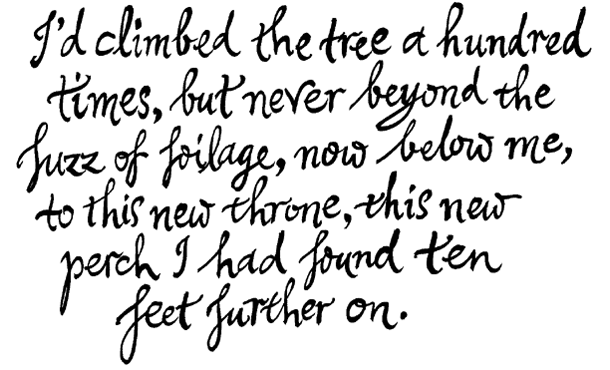 I'd climbed the tree a hundred
times, but never beyond the
fuzz of foilage, now below me,
to this new throne, this new
perch I had found ten
feet further on.